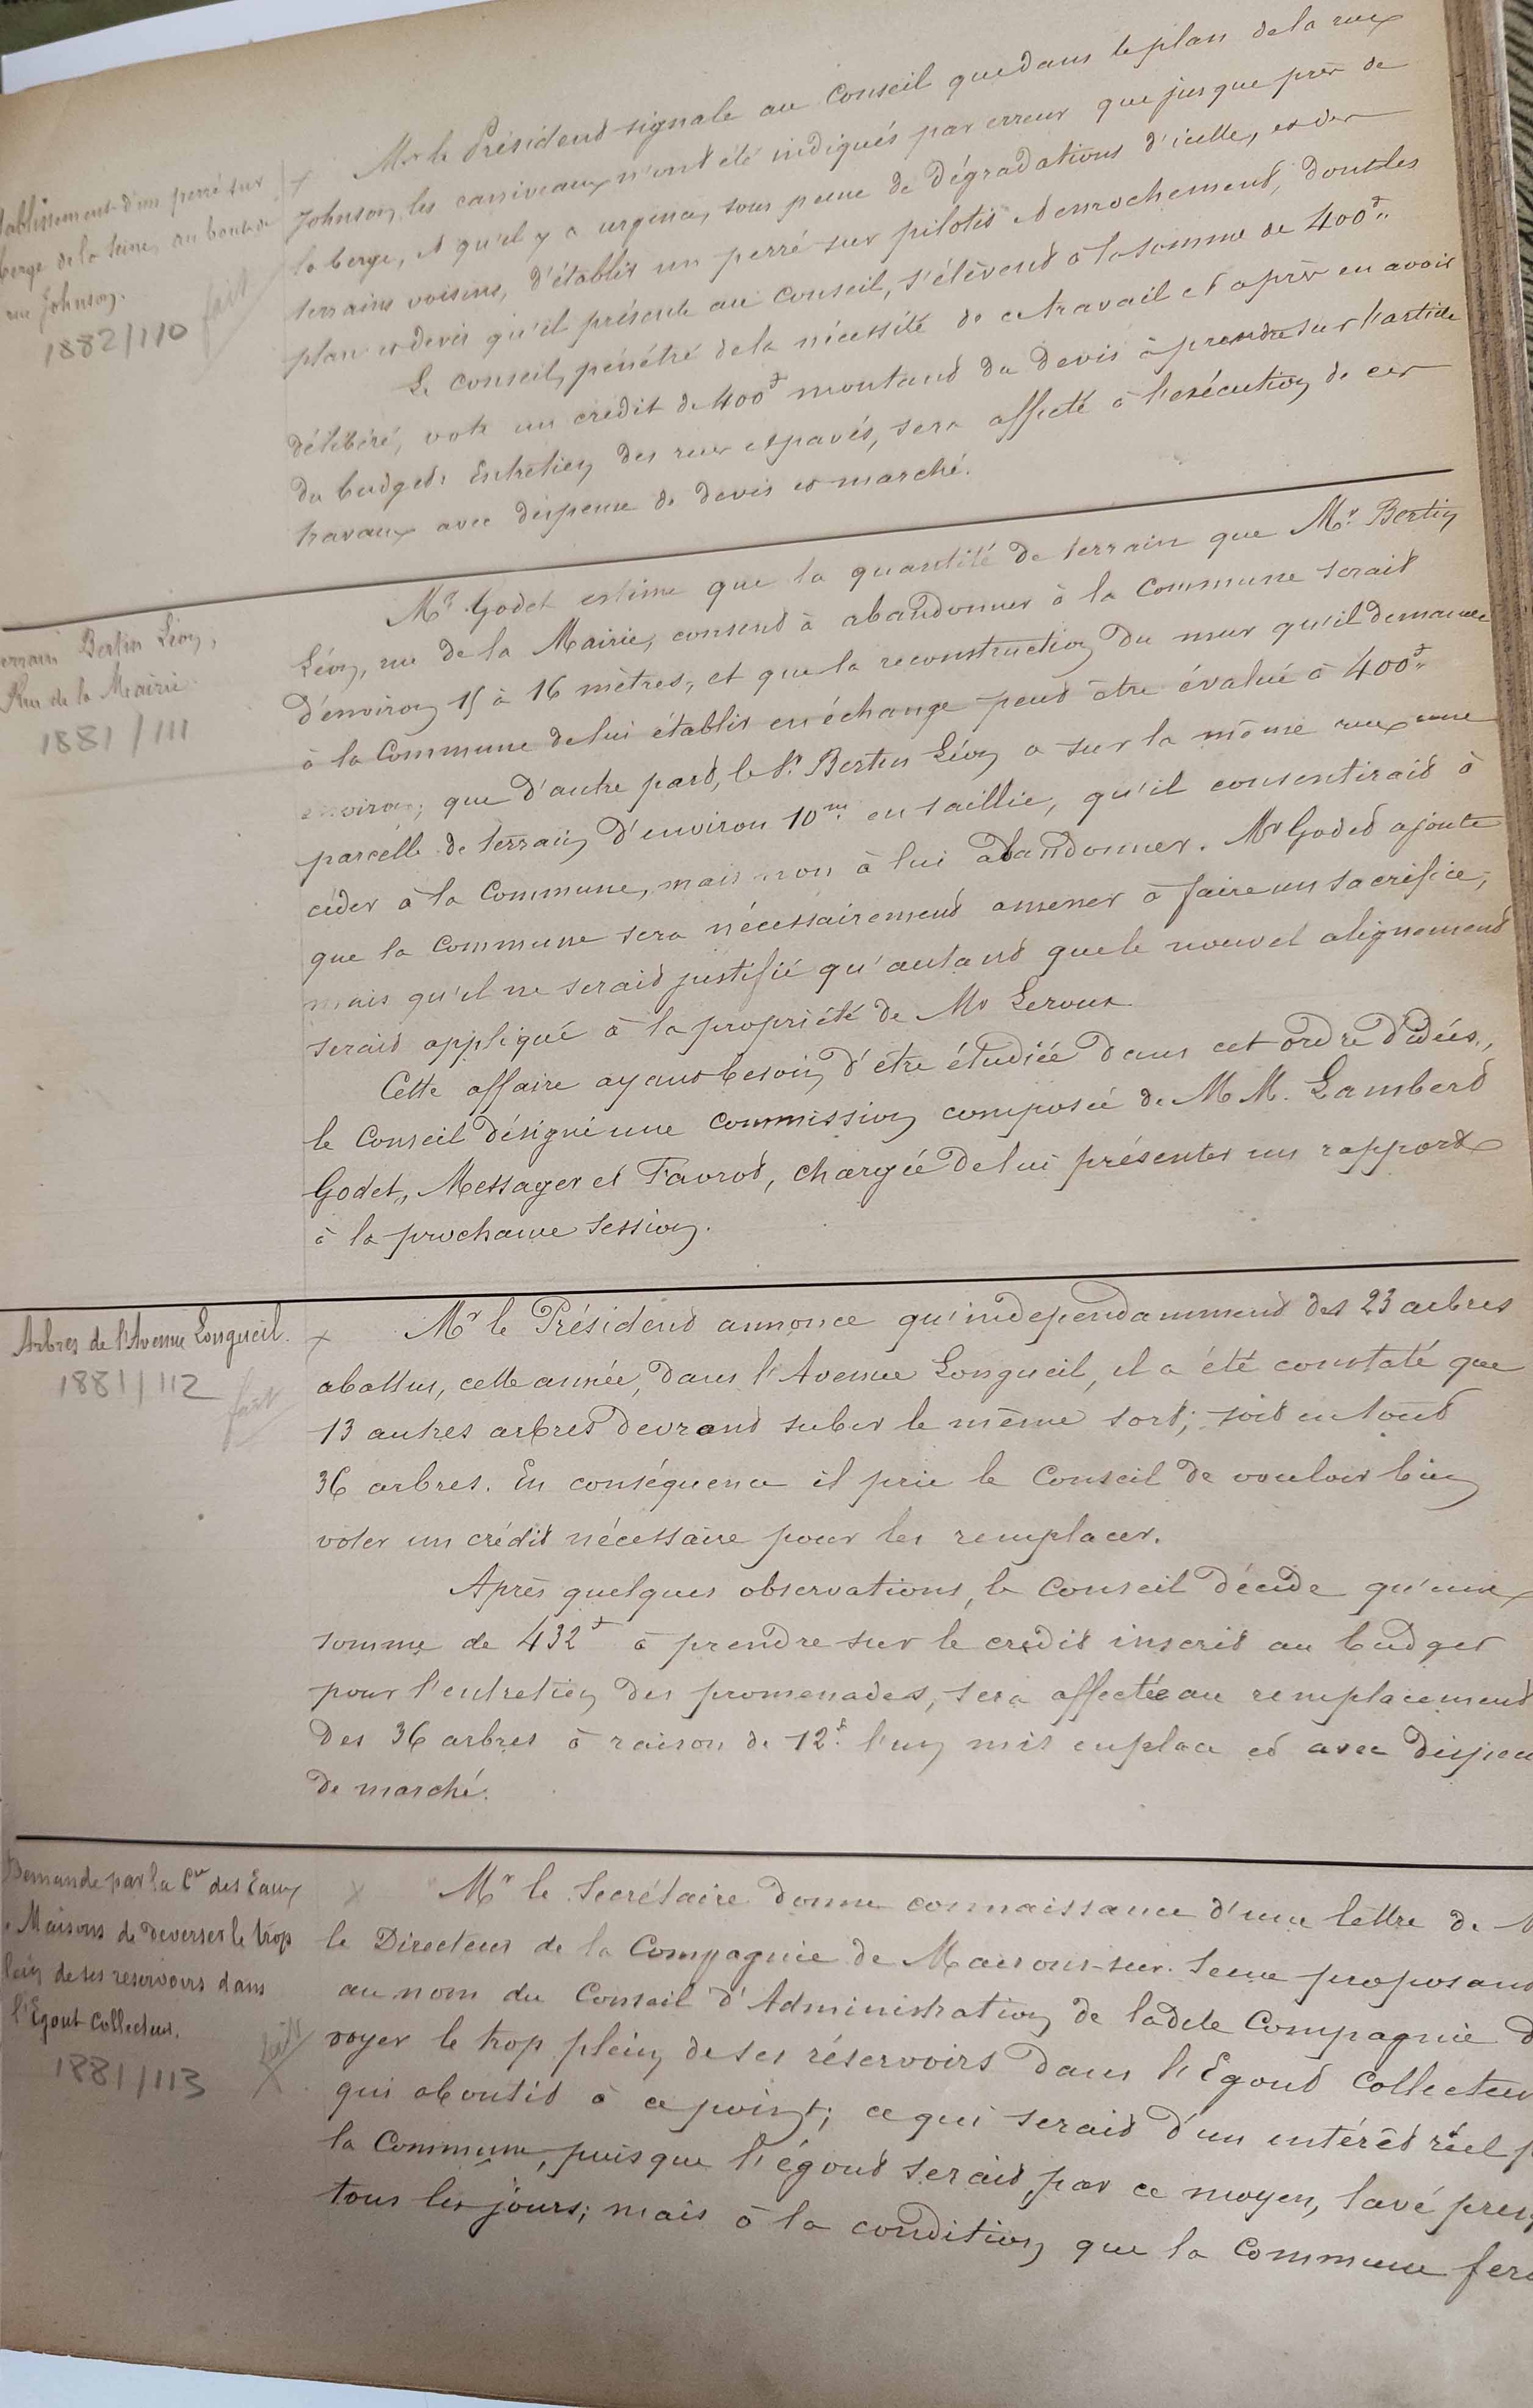 tablissement d'un perré sur
berge de la Seine, au bout de
rue Johnson.
1882/110
fait
Mr le Président signale au Conseil que dans le plan de la rue
Johnson, les caniveaux n'ont été indiqués par erreur que jusque près de
la berge, et qu'il y a urgence, sous peine de dégradations d'icelle, et des
terrains voisins, d'établir un perré sur pilotis et enrochement, dont les
plan et devis qu'il présente au Conseil, s'élèvent à la somme de 400f.
Le Conseil, pénétré de la nécessité de ce travail et après en avoir
délibéré, vote un crédit de 400f montant du devis à prendre sur l'article
du budget: Entretien des rues et pavés, sera affecté à l'exécution de ces
travaux avec dispense de devis et marché.
errain Bertin Léon,
Rue de la Mairie.
1881/111
Mr Godet estime que la quantité de terrain que Mr. Bertin
Léon, rue de la Mairie, consent à abandonner à la Commune serait
d'environ 15 à 16 mètres, et que la reconstruction du mur qu'il demande
à la Commune de lui établir en échange peut être évalué à 400f.
environ; que d'autre part, le Sr. Bertin Léon a sur la même rue une
parcelle de terrain d'environ 10m. en saillie, qu'il consentirait à
céder à la Commune, mais non à lui abandonner. Mr Godet ajoute
que la Commune sera nécessairement amener à faire un sacrifice,
mais qu'il ne serait justifié qu'autant que le nouvel alignement
serait appliqué à la propriété de Mr Leroux
Cette affaire ayant besoin d'être étudiée dans cet ordre d'idées,
le Conseil désigne une commission composée de MM. Lambert
Godet, Messager et Favrot, chargée de lui présenter un rapport
à la prochaine session.
Arbres de l'Avenue Longueil.
1881/112
fait
Mr le Président annonce qu'independamment des 23 arbres
abattus, cette année, dans l'Avenue Longueil, il a été constaté que
13 autres arbres devrant subir le même sort; soit en tout
36 arbres. En conséquence il prie le Conseil de vouloir bien
voter un crédit nécessaire pour les remplacer.
Après quelques observations, le Conseil décide qu'une
somme de 432f à prendre sur le crédit inscrit au budget
pour l'entretien des promenades, sera affectée au remplacement
des 36 arbres à raison de 12f. l'un mis en place et avec dispen
de marché.
Demande par la Cie des Eaux
Maisons de déverser le trop
lein de ses réservoirs dans
l'Egout Collecteur.
1881/113
fait
Mr le Secrétaire donne connaissance d'une lettre de M
le Directeur de la Compagnie de Maisons-sur-Seine proposant
au nom du Conseil d'Administration de ladite Compagnie d
voyer le trop plein de ses réservoirs dans l'Egout Collecteur
qui aboutit à ce point; ce qui serait d'un intérêt réel p
la Commune, puisque l'égout serait, par ce moyen, lavé presq
tous les jours; mais à la condition que la Commune fera